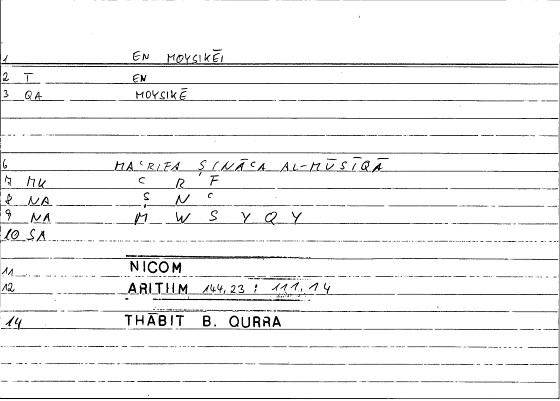 1 EN MOYSIKĒI
2 T EN
3 QA MOYSIKĒ
6 MAʿRIFA ṢINĀʿA AL-MŪSĪQĀ
7 MK ʿ R F
8 NA Ṣ N ʿ
9 NA M W S Y Q Y
10 SA
11 NICOM
12 ARITHM 144,23 : 111,14
14 THĀBIT B. QURRA